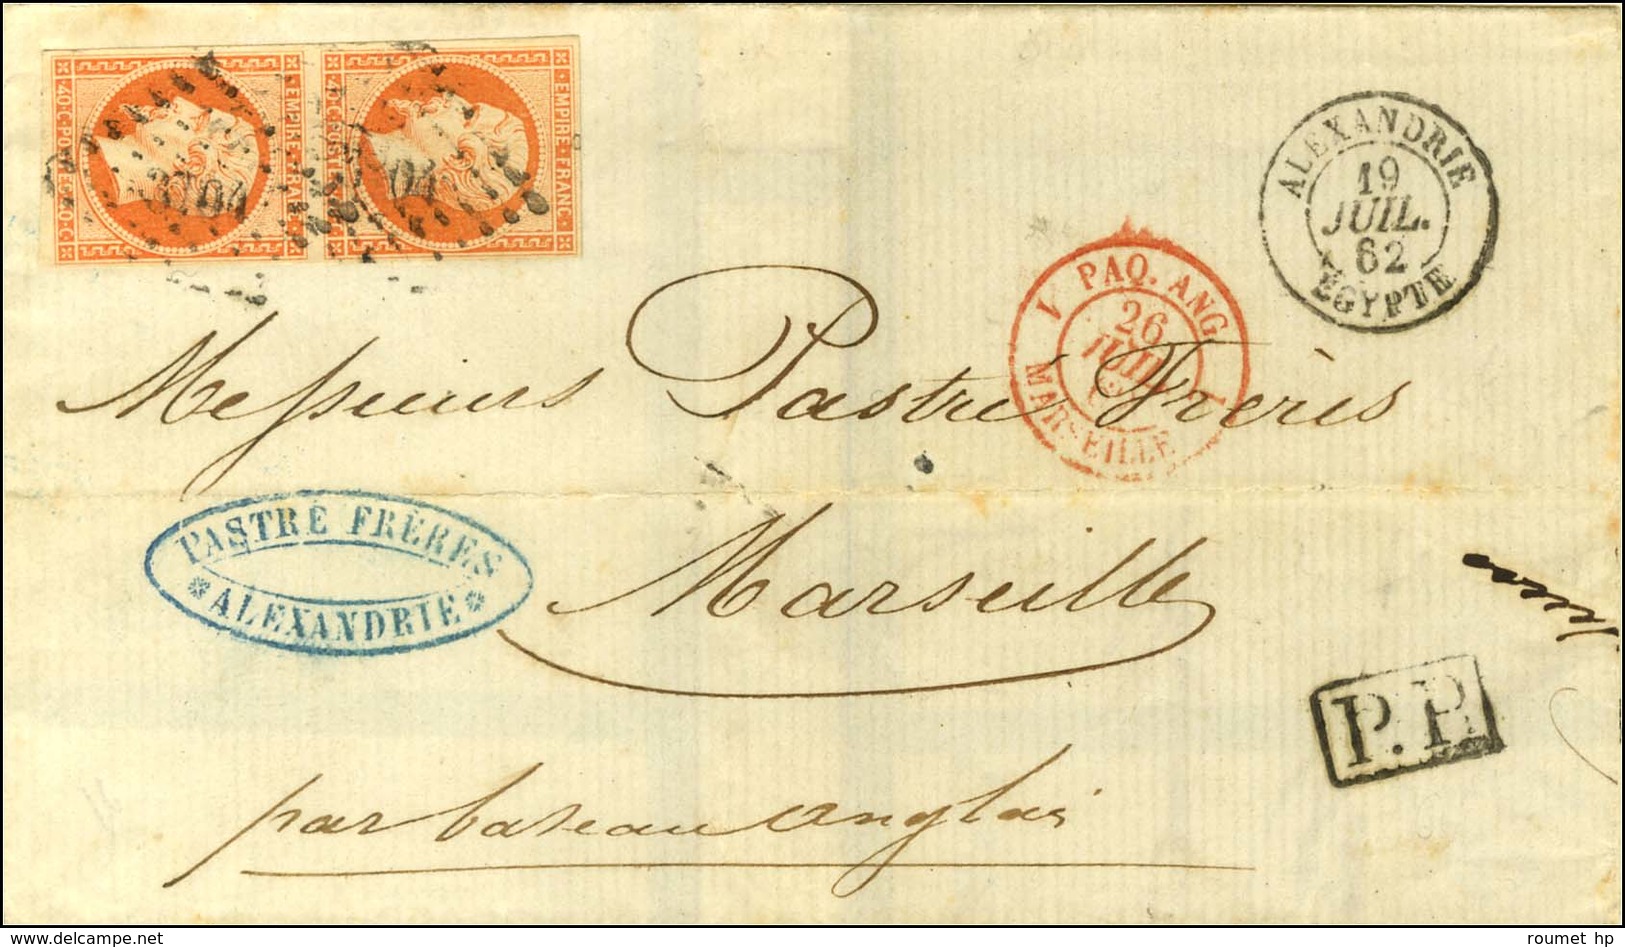 EMPIRE·FRANC·
40·C·POSTES·40·C
3704
EMPIRE·FRANC·
ALEXANDRIE
19
JUIL.
62
EGYPTE
V PAQ. ANG. V
26
JUIL.
MARSEILLE
Messieurs Pastré Frères
Marseille
PASTRÉ FRÈRES
ALEXANDRIE
P.P.
par bateau anglais
delcampe.net
roumet hp